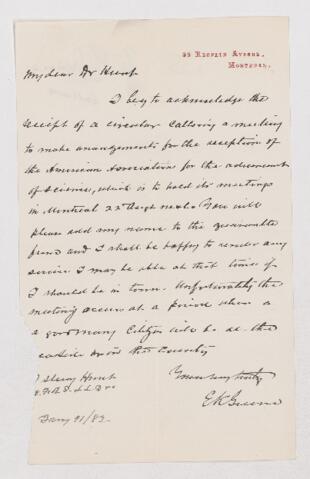 My dear Dr Hunt
I beg to acknowledge the
receipt of a circular calling a meeting
to make arrangements for the reception of
the American Association for the advancement
of Science, which is to hold its meetings
in Montreal 22 Augt next. You will
please add my name to the guarantee
fund and I shall be happy to render any
service I may be able at that time if
I should be in town. Unfortunately the
meeting occurs at a period when a
a good many Citizens will be at the
down the Country
Yours very truly
EKGreene
Sterry Hunt